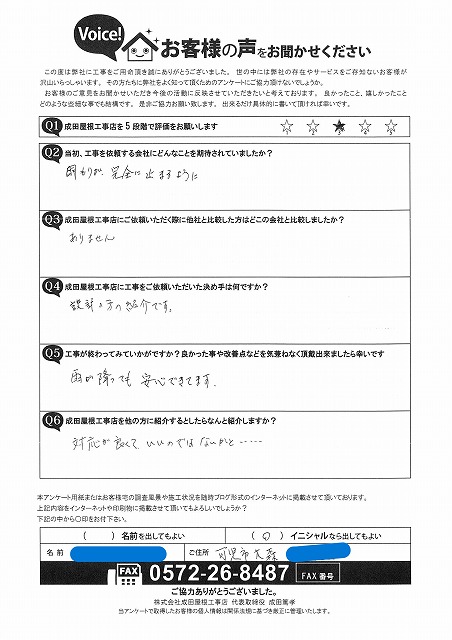 Voice!
お客様の声をお聞かせください
この度は弊社に工事をご用命頂き誠にありがとうございました。 世の中には弊社の存在やサービスをご存知ないお客様が
沢山いらっしゃいます。 その方たちに弊社をよく知って頂くためのアンケートにご協力頂けないでしょうか。
お客様のご意見をお聞かせいただき今後の活動に反映させていただきたいと考えております。 良かったこと、嬉しかったこと
どのような些細な事でも結構です。 是非ご協力お願い致します。 出来るだけ具体的に書いて頂ければ幸いです。
Q1 成田屋根工事店を5段階で評価をお願いします ☆ ☆ ★ ☆ ☆
1 2 3 4 5
Q2 当初、工事を依頼する会社にどんなことを期待されていましたか?
雨もりが、完全に止まるように
Q3 成田屋根工事店にご依頼いただく際に他社と比較した方はどこの会社と比較しましたか?
ありません
Q4 成田屋根工事店に工事をご依頼いただいた決め手は何ですか?
設計の方の紹介です。
Q5 工事が終わってみていかがですか?良かった事や改善点などを気兼ねなく頂戴出来ましたら幸いです
雨が降っても安心できてます.
Q6 成田屋根工事店を他の方に紹介するとしたらなんと紹介しますか?
対応が良くて、いいのではないかと‥‥‥
本アンケート用紙またはお客様宅の調査風景や施工状況を随時ブログ形式のインターネットに掲載させて頂いております。
上記内容をインターネットや印刷物に掲載させて頂いてもよろしいでしょうか?
下記の中から〇印をお付下さい。
( ) 名前を出してもよい ( 〇 ) イニシャルなら出してもよい
名前 ご住所 可児市大森
FAX 0572-26-8487 FAX番号
ご協力ありがとうございました。
株式会社成田屋根工事店 代表取締役 成田篤孝
当アンケートで取得したお客様の個人情報は関係法規に基づき厳正に管理いたします。